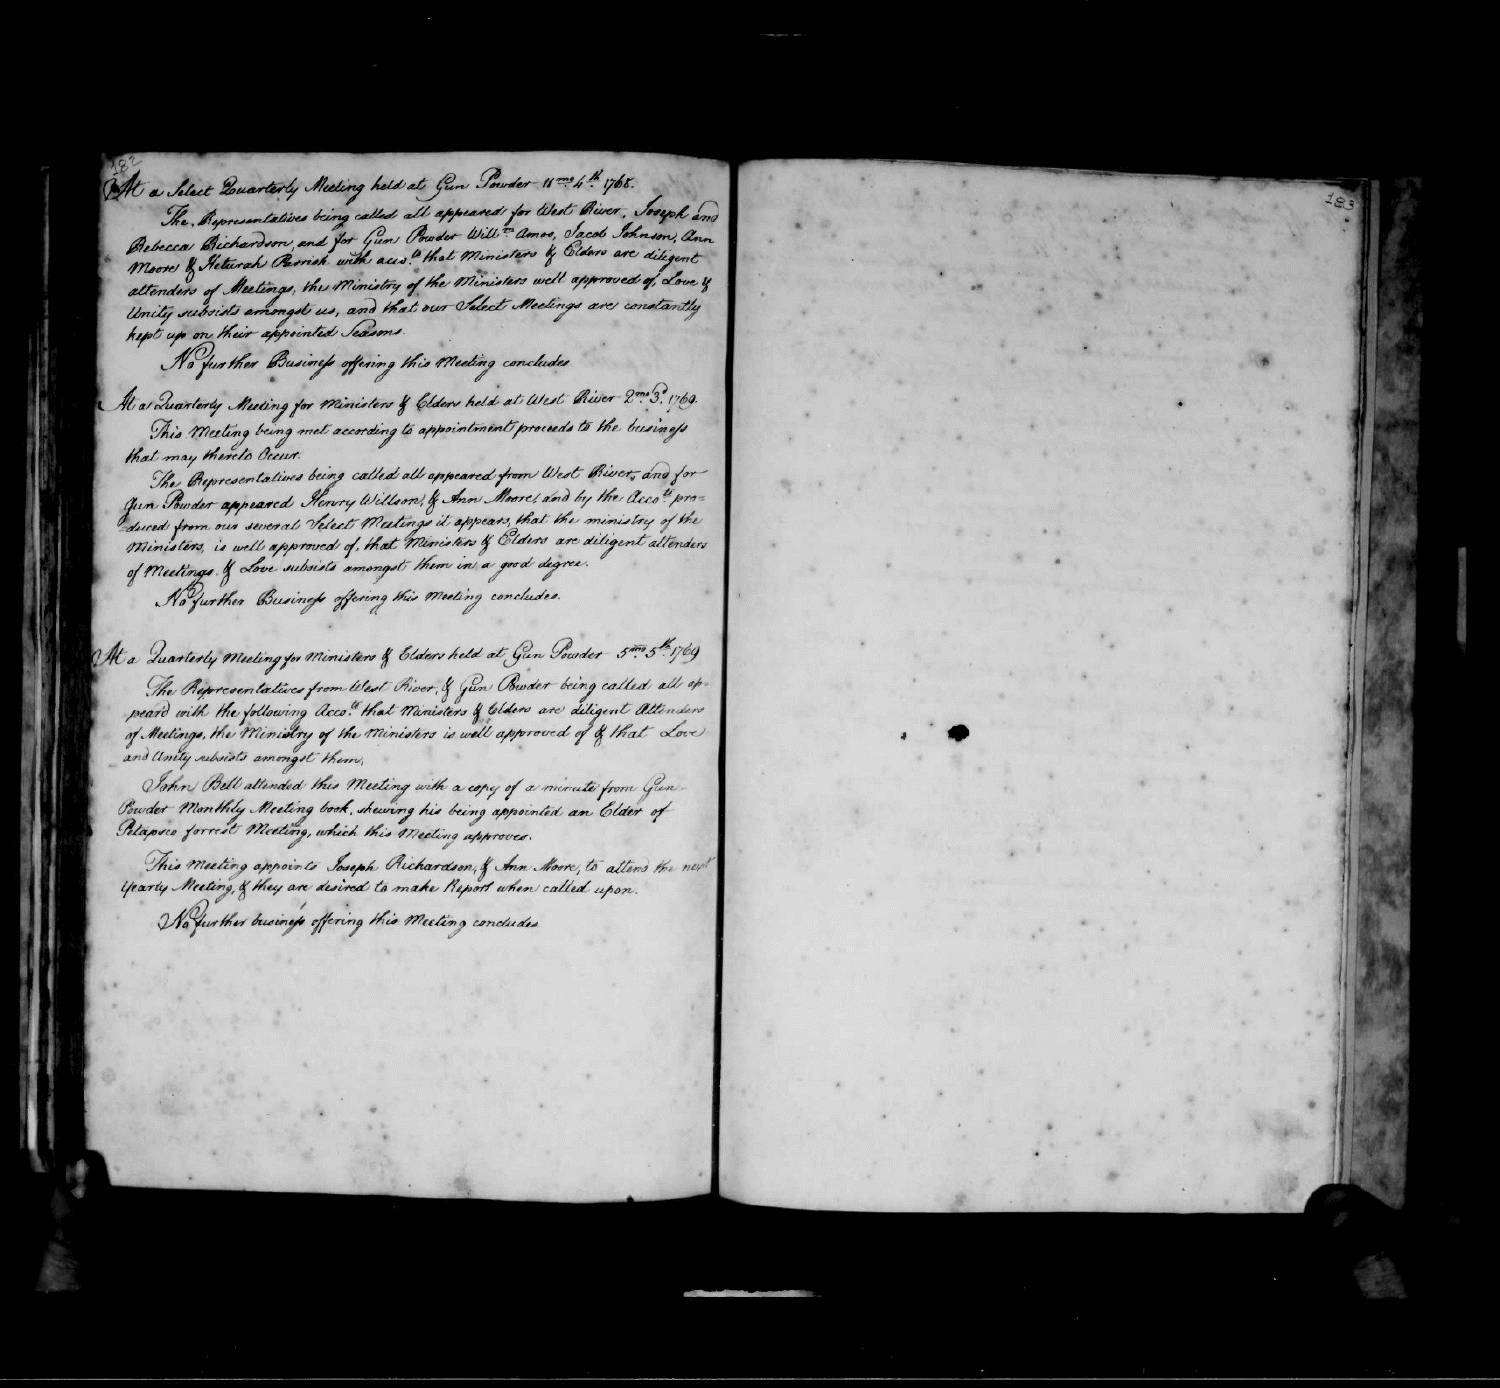 182
At a Select Quarterly Meeting held at Gun Powder 11mo 4th 1768.
The Representatives being called all appeared for West River, Joseph and
Rebecca Richardson, and for Gun Powder Willm Amos, Jacob Johnson, Ann
Moore & Keturah Parrish with accots that Ministers & Elders are diligent
attenders of Meetings, the Ministry of the Ministers well approved of, Love &
Unity subsists amongst us, and that our Select Meetings are constantly
kept up on their appointed Seasons.
No further Business offering this Meeting concludes
At a Quarterly Meeting for Ministers & Elders held at West River 2mo 3d 1769.
This Meeting being met according to appointment proceeds to the business
that may thereto Occur.
The Representatives being called all appeared from West River, and for
Gun Powder appeared Henry Willson, & Ann Moore, and by the Accots pro=
=duced from our several Select Meetings it appears, that the ministry of the
Ministers, is well approved of, that Ministers & Elders are diligent attenders
of Meetings & Love subsists amongst them in a good degree.
No further Business offering this Meeting concludes.
At a Quarterly Meeting for Ministers & Elders held at Gun Powder 5mo 5th 1769
The Representatives from West River, & Gun Powder being called all ap=
peard with the following Accots that Ministers & Elders are diligent Attenders
of Meetings, the Ministry of the Ministers is well approved of & that Love
and Unity subsists amongst them,
John Bell attended this Meeting with a copy of a minute from Gun
Powder Monthly Meeting book, shewing his being appointed an Elder of
Petapsco forrest Meeting, which this Meeting approves.
This Meeting appoints Joseph Richardson, & Ann Moore, to attend the next
Yearly Meeting, & they are desired to make Report when called upon.
No further business offering this Meeting concludes
183